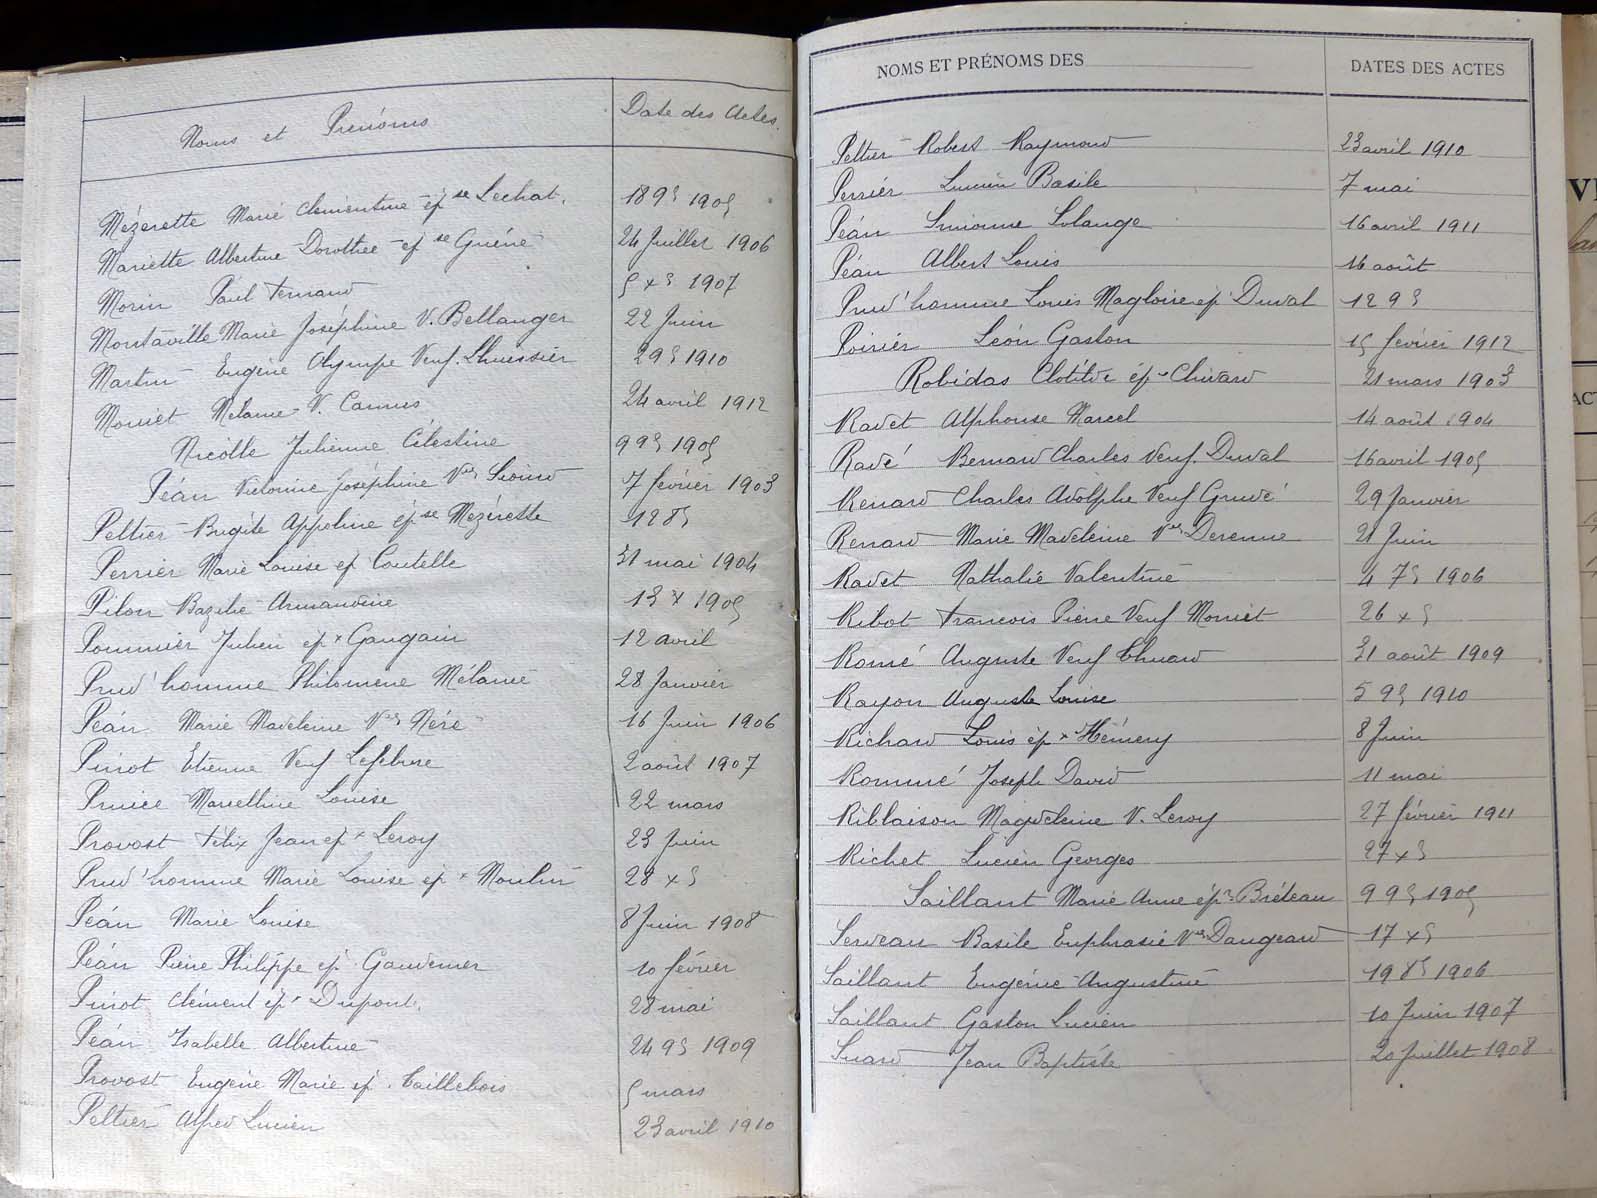 Noms et Prénoms
Date des Actes.
Mézerette Marie Clémentine épse Lechat. 18 9s 1905
Mariette Albertine Dorothée épse Guéné 24 Juillet 1906
Morin Paul Fernand 5 xs 1907
Montaville Marie Joséphine V. Bellanger 22 Juin
Martin Eugène Olympe Veuf. Lhuissier 29 s 1910
Moriet Mélanie V. Camus 24 avril 1912
Nicolle Julienne Célestine 9 9s 1905
Péan Victorine Joséphine Vve 7 février 1903
Peltier Brigite Appoline épse Mézerette 12 8s
Perrier Marie Louise ép Coutelle 31 mai 1904
Pilon Bazilie Armandine 13 x 1905
Pommier Julien ép x Gaugain 12 avril
Prud'homme Philomène Mélanie 28 Janvier
Péan Marie Madeleine Vve Néré 16 Juin 1906
Pinot Etienne Veuf Lefebvre 2 août 1907
Marcelline Louise 22 mars
Provost Félix Jean ép x Leroy 23 Juin
Prud'homme Marie Louise ép x Moulin 28 xs
Péan Marie Louise 8 Juin 1908
Péan Pierre Philippe ép 10 février
Pinot Clément ép Dupont. 28 mai
Péan Isabelle Albertine 24 9s 1909
Provost Eugénie Marie ép. Taillebois 5 mars
Peltier Alfred Lucien 23 avril 1910
NOMS ET PRÉNOMS DES
DATES DES ACTES
Peltier Robert Raymond 23 avril 1910
Perrier Lucien Basile 7 mai
Péan Simonne Solange 16 avril 1911
Péan Albert Louis 16 août
Prud'homme Louis Magloire ép Duval 12 9s
Poirier Léon Gaston 15 février 1912
Robidas Clotilde ép Chivard 21 mars 1903
Radet Alphonse Marcel 14 août 1904
Radé Bernard Charles Veuf. Duval 16 avril 1905
Renard Charles Adolphe Veuf Grudé 29 Janvier
Renard Marie Madeleine Vve Derenne 21 Juin
Radet Nathalie Valentine 4 7s 1906
Ribot Francois Pierre Veuf Moriet 26 xs
Romé Auguste Veuf 31 août 1909
Rayon Auguste Louise 5 9s 1910
Richard Louis ép x Hémery 8 Juin
Rommé Joseph David 11 mai
Riblaison Magdeleine V. Leroy 27 février 1911
Richet Lucien Georges 27 xs
Saillant Marie Anne ép Bréteau 9 9s 1905
Serveau Basile Euphrasie Vve Daugeard 17 xs
Saillant Eugénie Augustine 19 8s 1906
Saillant Gaston Lucien 10 Juin 1907
Suard Jean Baptiste 20 Juillet 1908